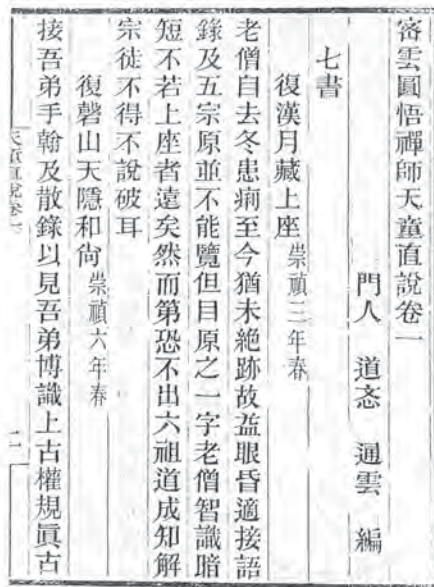 密雲圓悟禪師天童直說卷一
門人 道忞 通雲 編
七書
復漢月藏上座 崇禎三年春
老僧自去冬患痢至今猶未絕跡故益眼昏適接語
錄及五宗原並不能覽但目原之一字老僧智識暗
短不若上座者遠矣然而第恐不出六祖道成知解
宗徒不得不說破耳
復磬山天隱和尙 崇禎六年春
接吾弟手翰及散錄以見吾弟博識上古權規眞古
天童直說卷一